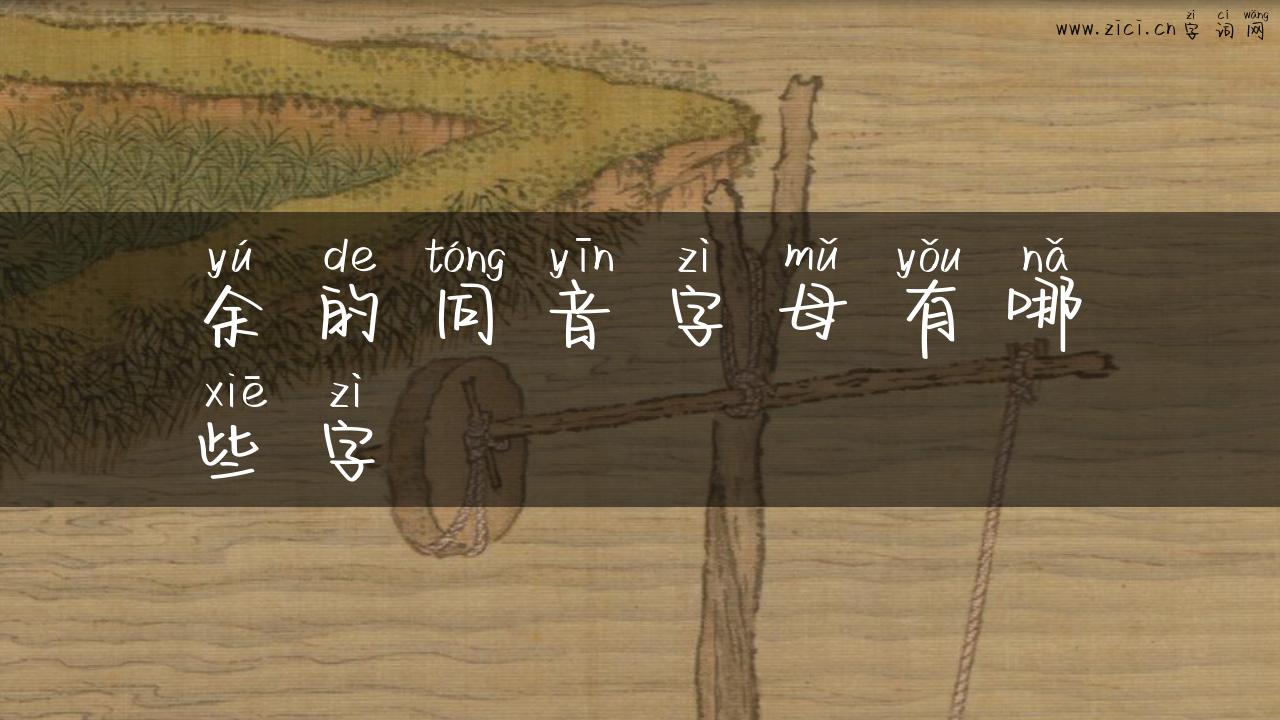 zì cí wǎng
www.zici.cn 字 词 网
yú de tóng yīn zì mǔ yǒu nǎ
余 的 同 音 字 母 有 哪
xiē zì
些 字